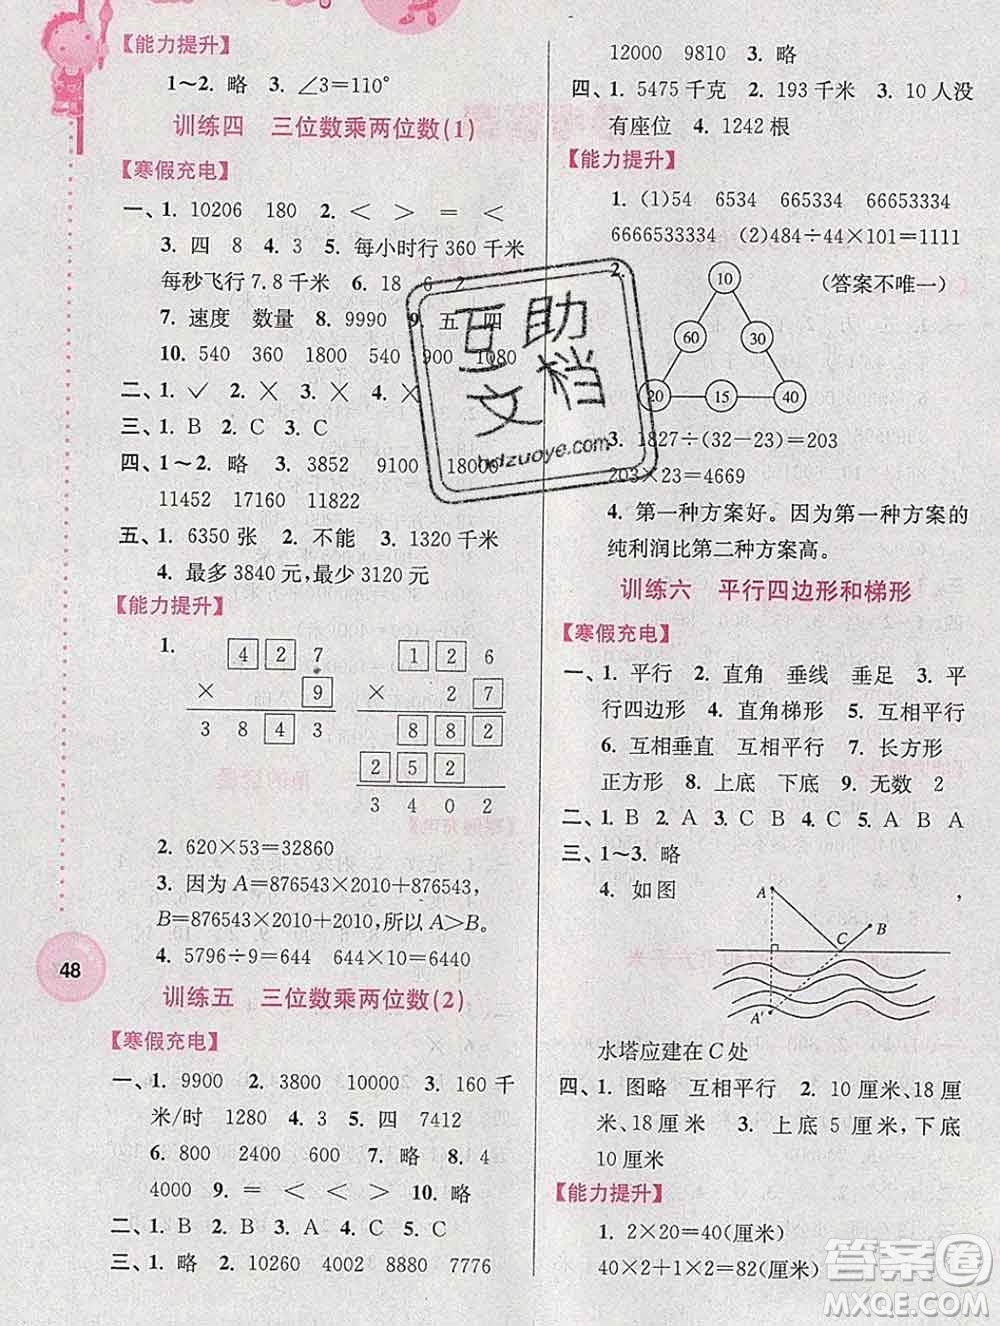 【能力提升】
1～2. 略　3. ∠3=110°
训练四　三位数乘两位数(1)
【寒假充电】
一、1. 10206　180　2. <　>　=　<
3. 四　8　4. 3　5. 每小时行 360 千米
每秒飞行 7.8 千米　6. 18　6　2
7. 速度　数量　8. 9990　9. 五　四
10. 540　360　1800　540　900　1080
二、1. ✓　2. ×　3. ×　4. ×
三、1. B　2. C　3. C
四、1～2. 略　3. 3852　9100　18000
11452　17160　11822
五、1. 6350 张　2. 不能　3. 1320 千米
4. 最多 3840 元,最少 3120 元
【能力提升】
1.
4 2 7
× 9
3 8 4 3
1 2 6
× 2 7
8 8 2
2 5 2
3 4 0 2
2. 620×53=32860
3. 因为 A=876543×2010+876543,
B=876543×2010+2010,所以 A>B。
4. 5796÷9=644　644×10=6440
训练五　三位数乘两位数(2)
【寒假充电】
一、1. 9900　2. 3800　10000　3. 160 千
米/时　1280　4. 3　5. 四　7412
6. 800　2400　600　7. 略　8. 4
4000　9. =　<　<　>　10. 略
二、1. B　2. B　3. A　4. C　5. C
三、1. 略　2. 10260　4002　8880　7776
48
12000　9810　3. 略
四、1. 5475 千克　2. 193 千米　3. 10 人没
有座位　4. 1242 根
【能力提升】
1. (1)54　6534　665334　66653334
6666533334　(2)484÷44×101=1111
2.
10
(答案不唯一)
60 30
20 15 40
3. 1827÷(32-23)=203
203×23=4669
4. 第一种方案好。因为第一种方案的
纯利润比第二种方案高。
训练六　平行四边形和梯形
【寒假充电】
一、1. 平行　2. 直角　垂线　垂足　3. 平
行四边形　4. 直角梯形　5. 互相平行
6. 互相垂直　互相平行　7. 长方形
正方形　8. 上底　下底　9. 无数　2
二、1. B　2. A　3. C　4. C　5. A　B　A
三、1～3. 略
4. 如图
,
A
B
C
A′
水塔应建在 C 处
四、1. 图略　互相平行　2. 10 厘米、18 厘
米、18 厘米　3. 上底 5 厘米,下底
10 厘米
【能力提升】
1. 2×20=40(厘米)
40×2+1×2=82(厘米)
互助
文档
hdzuoye.com
答案圈
MXQE.COM